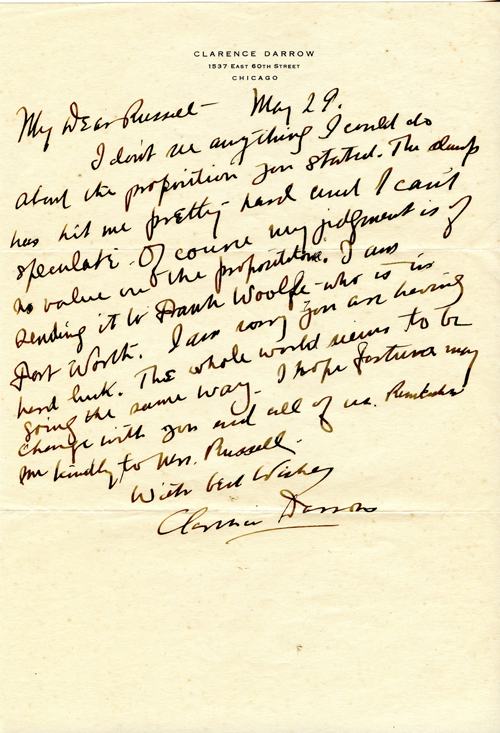 CLARENCE DARROW
1537 EAST 60TH STREET
CHICAGO
My Dear Russell - May 29.
I don't see anything I could do
about the proposition you stated. The slump
has hit me pretty hard and I can't
speculate. Of course my judgment is of
no value on the proposition. I am
sending it to Frank Woolfe - who is in
Fort Worth. I am sorry you are having
hard luck. The whole world seems to be
going the same way. I hope fortunes may
change with you and all of us. Remember
me kindly to Mrs. Russell.
With best wishes
Clarence Darrow